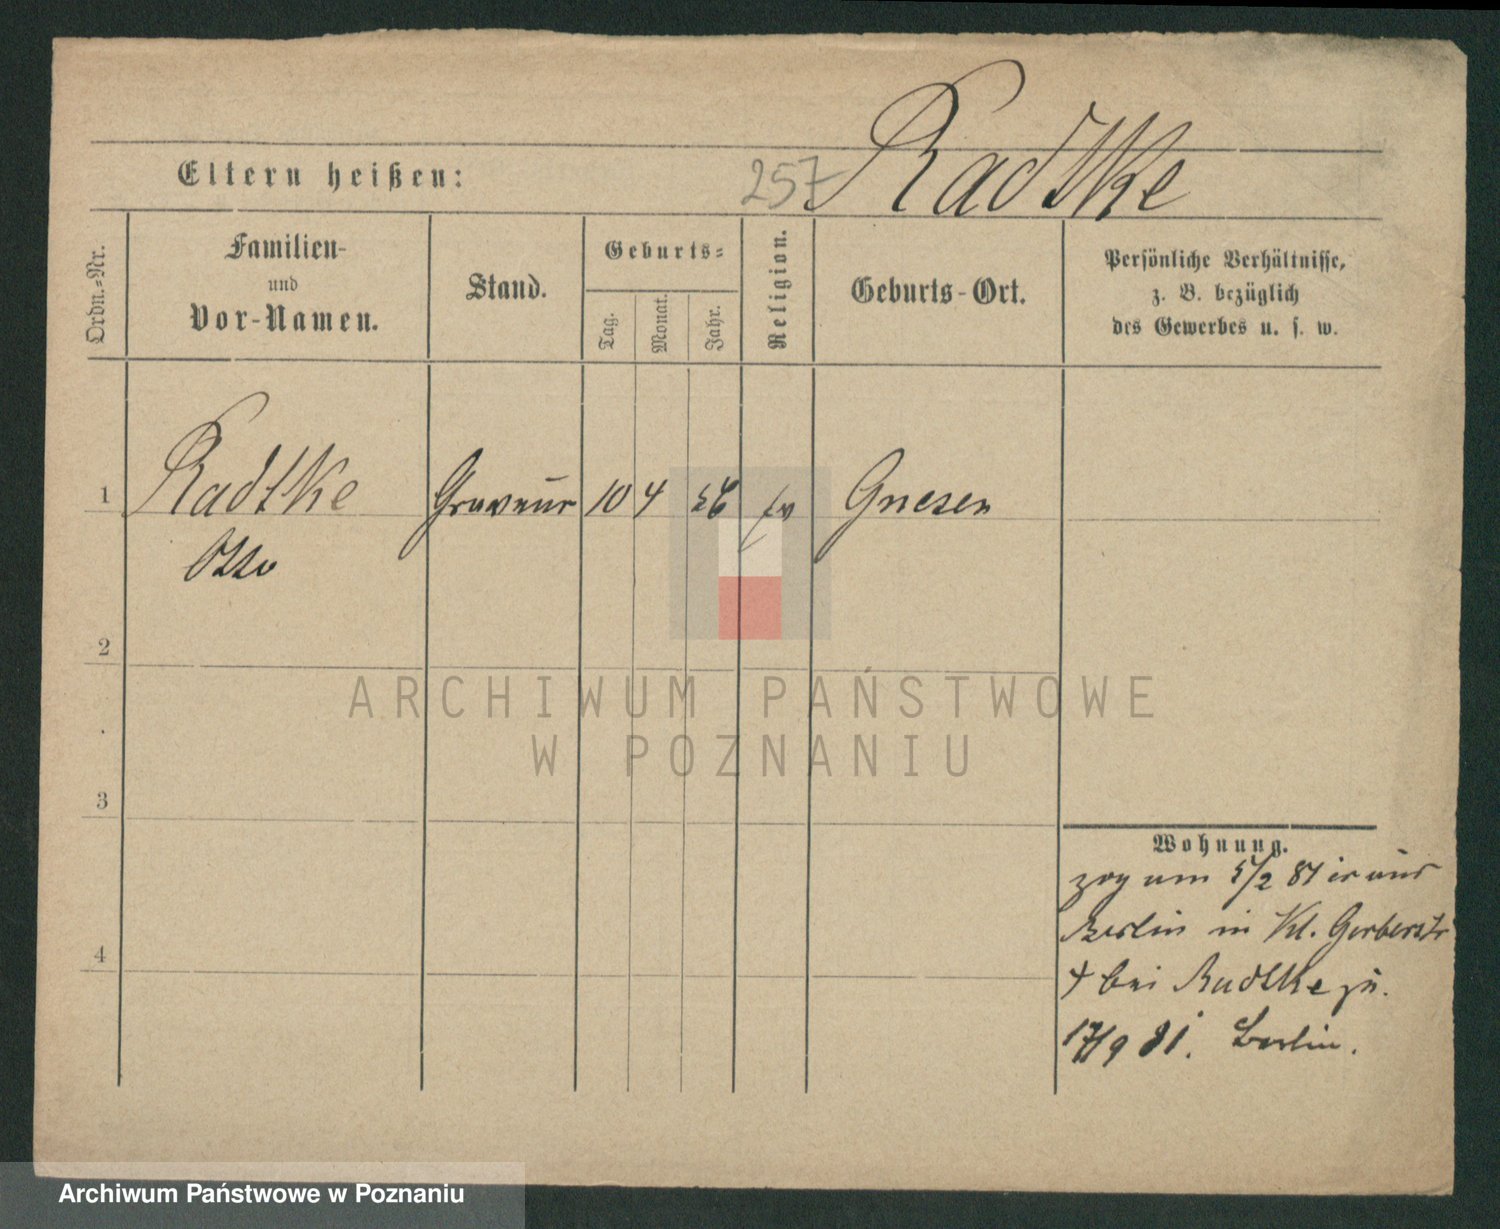 257 Radtke
Eltern heißen:
Ordn.-Nr.
Familien-
und
Vor-Namen.
Stand.
Geburts-
Tag.
Monat.
Jahr.
Religion.
Geburts-Ort.
Persönliche Verhältnisse,
z. B. bezüglich
des Gewerbes u. s. w.
1 Radtke Graveur 10 4 56 ev Gnesen
Otto
2
3
4
Wohnung.
zog am 5/2 81
Berlin in Kl. Gerberstr
4 bei Radtke zu.
17/9 81. Berlin.
ARCHIWUM PAŃSTWOWE
W POZNANIU
Archiwum Państwowe w Poznaniu